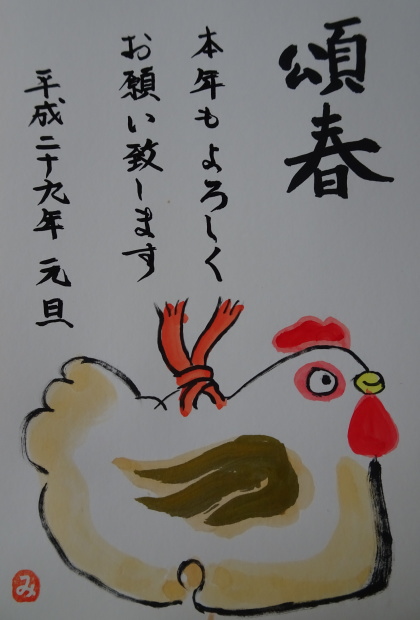 頌春
本年もよろしく
お願い致します
平成二十九年 元旦
み